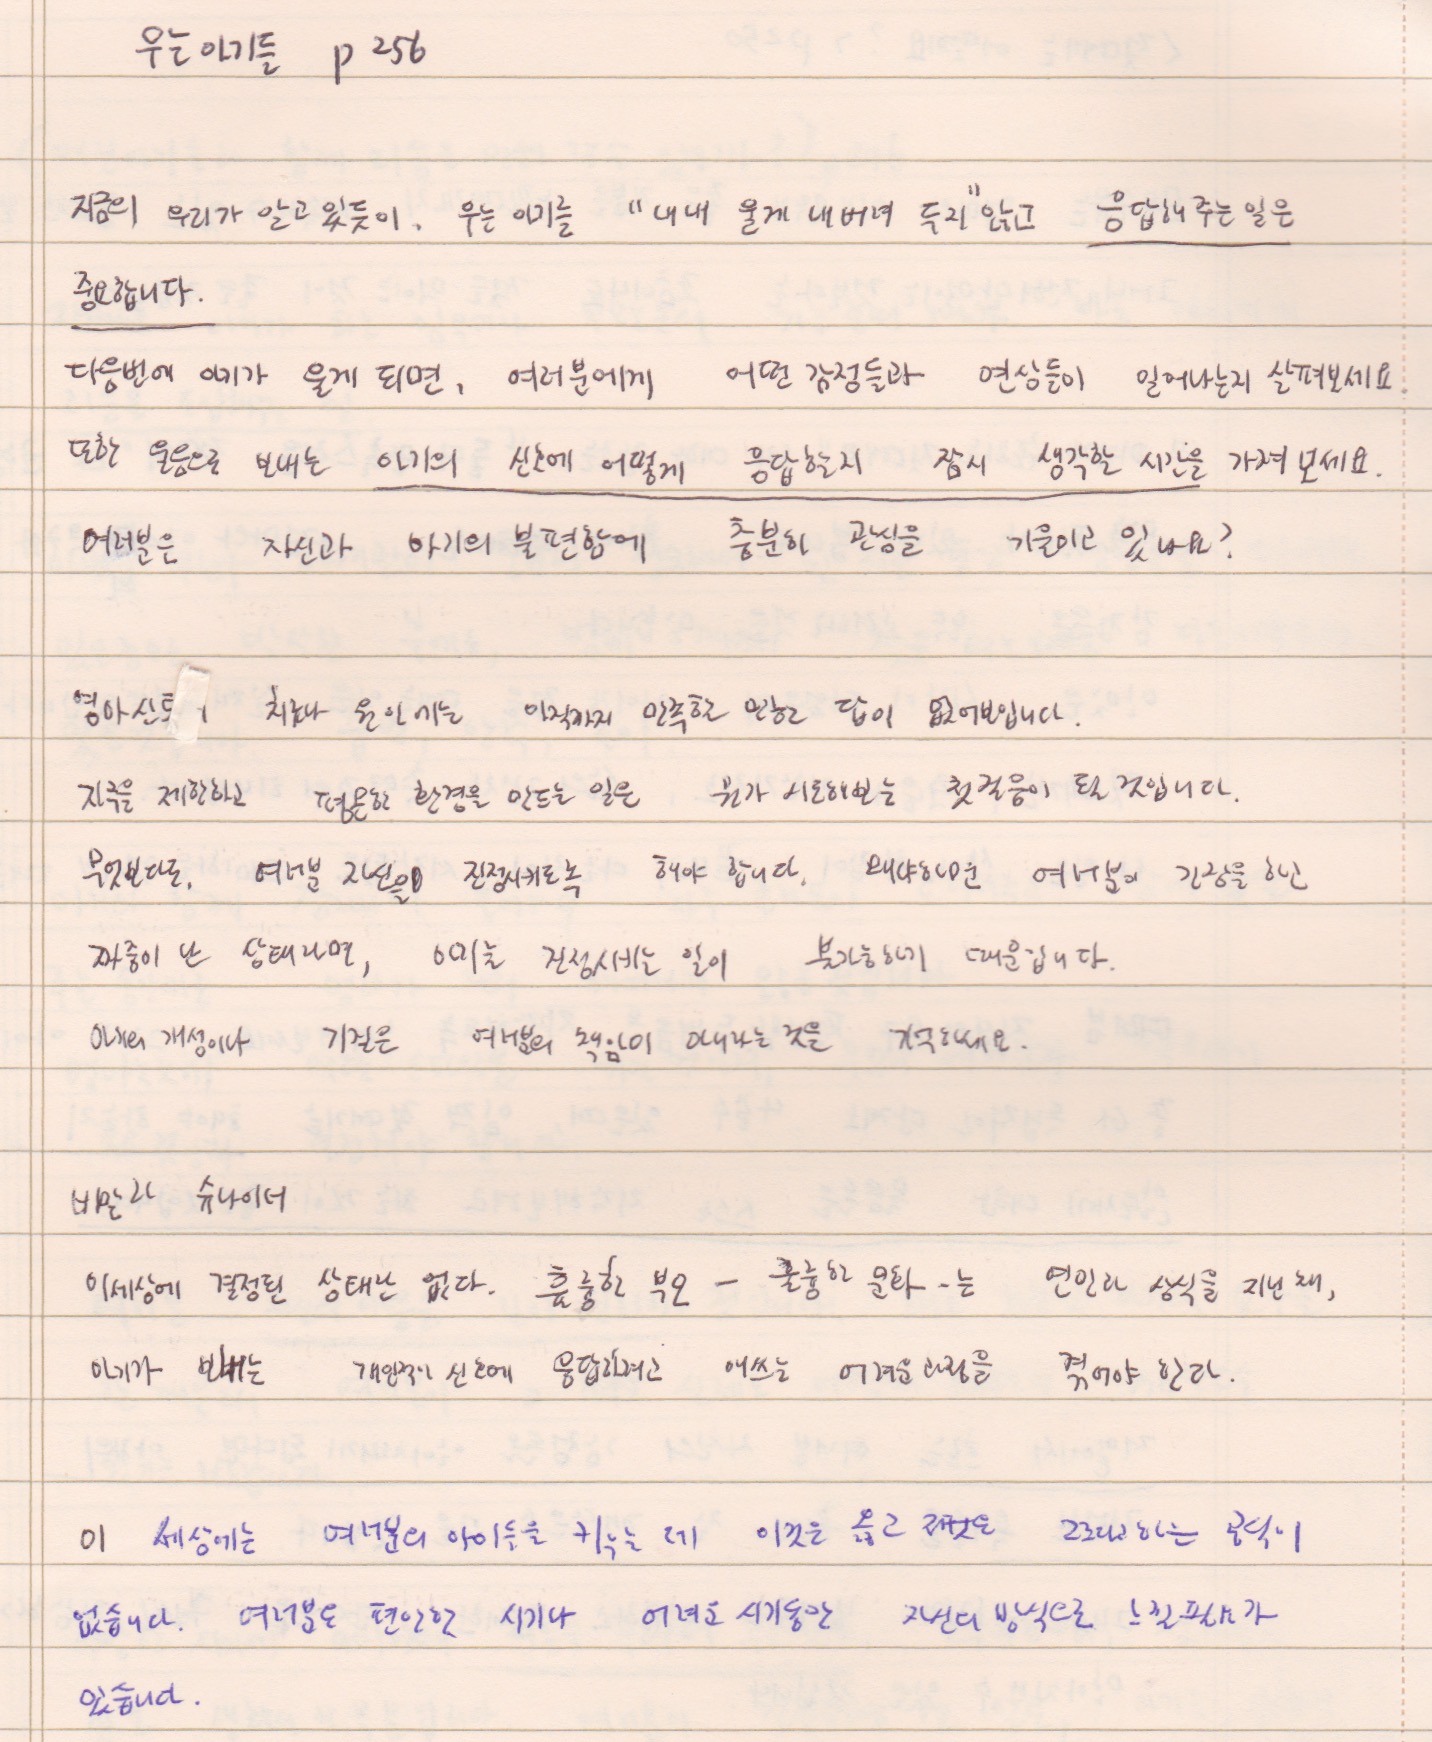 우는 아기들 p 256
지금의 우리가 알고 있듯이, 우는 아기를 "내내 울게 내버려 두지" 않고 응답해 주는 일은
중요합니다.
다음번에 아기가 울게 되면, 여러분에게 어떤 감정들과 연상들이 일어나는지 살펴보세요
또한 울음으로 보내는 아기의 신호에 어떻게 응답할지 잠시 생각할 시간을 가져보세요.
여러분은 자신과 아기의 불편함에 충분히 관심을 기울이고 있나요?
영아산통 치료나 원인에는 아직까지 만족할 만한 답이 없어보입니다.
자극을 제한하고 평온한 환경을 만드는 일은 뭔가 시도해보는 첫걸음이 될 것입니다.
무엇보다도, 여러분 자신을 진정시키도록 해야 합니다. 왜냐하면 여러분이 긴장을 하던
짜증이 난 상태라면, 아기를 진정시키는 일이 불가능하기 때문입니다.
아기의 개성이나 기질은 여러분의 책임이 아니라는 것을 기억하세요.
비말라 슈나이더
이세상에 결정된 상태란 없다. 훌륭한 부모 - 훌륭한 문화 - 는 연민과 상식을 지닌채,
아기가 보내는 개인적인 신호에 응답하려고 애쓰는 어려운 과정을 겪어야 한다.
이 세상에는 여러분의 아이들을 키우는 데 이것은 옳고 저것도 그르다고 하는 공식이
없습니다. 여러분도 편안한 시기나 어려운 시기동안 자신의 방식으로 느낄 필요가
있습니다.